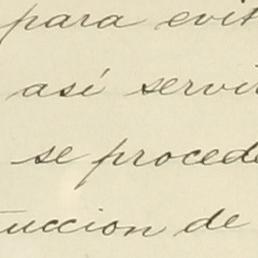 para evit
así servi
se procede
uccion de